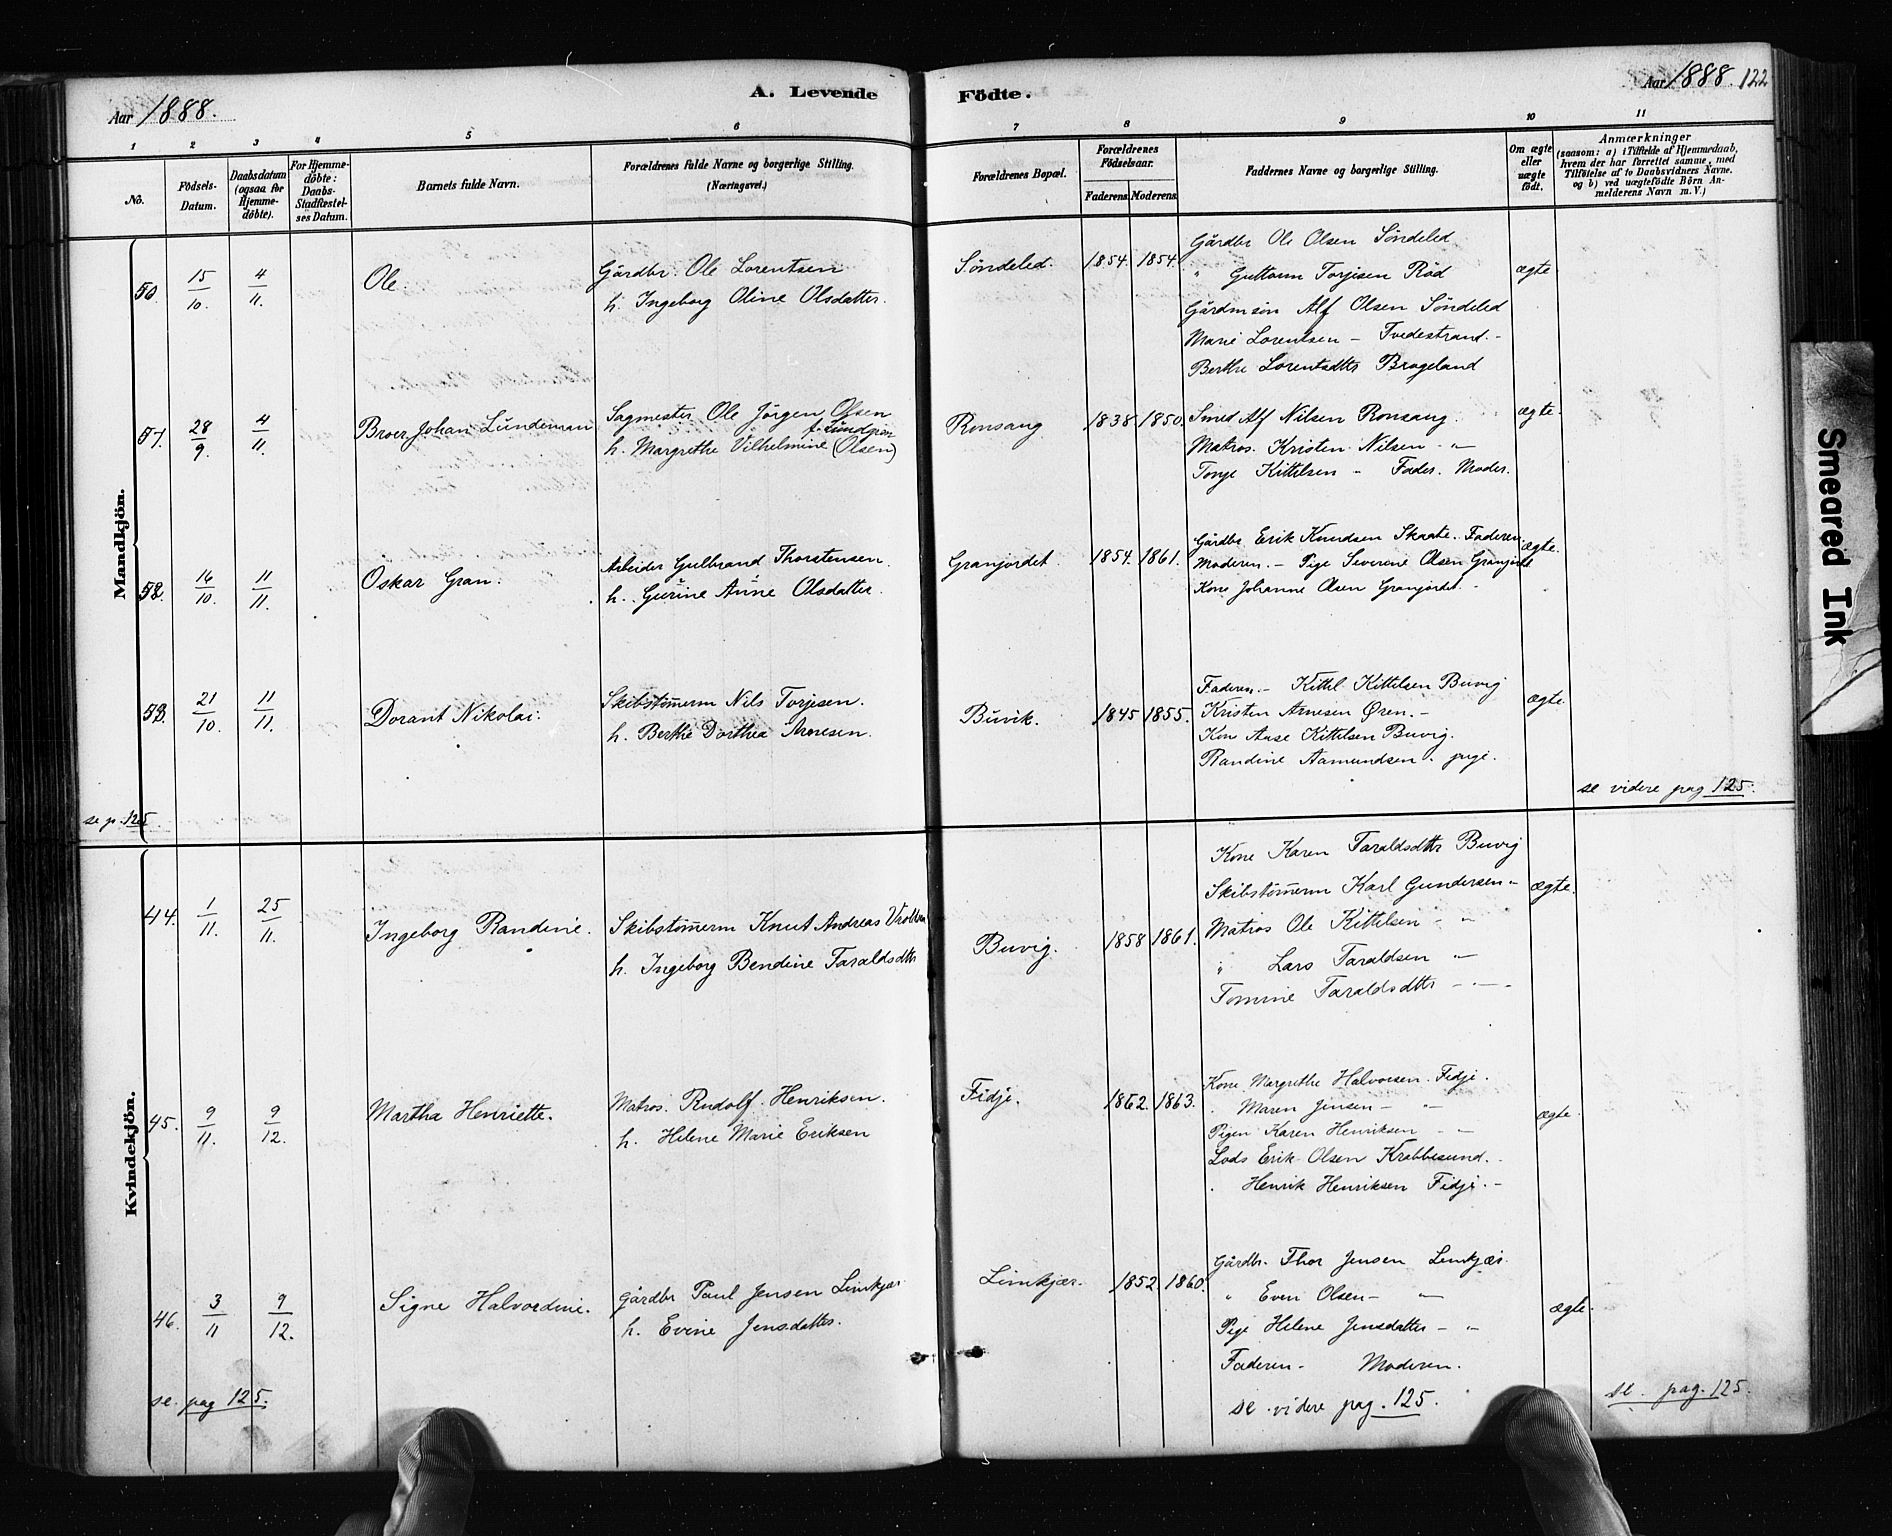 Aar 1888.
A. Levende
Födte.
Aar 1888. 122
1 2 3 4 5 6 7 8 9 10 11
No.
Födsels-
Datum.
Daabsdatum
(ogsaa for
Hjemme-
döbte).
For Hjemme-
döbte:
Daabs-
Stadfæstel-
ses Datum.
Barnets fulde Navn.
Forældrenes fulde Navne og borgerlige Stilling.
(Næringsvei.)
Forældrenes Bopæl.
Forældrenes
Födselsaar.
Faderens Moderens
Faddernes Navne og borgerlige Stilling.
Om ægte
eller
uægte
født.
Anmærkninger
(saasom: a) i Tilfælde af Hjemmedaab,
hvem der har forrettet samme, med
Tilföielse af to Daabsvidners Navne.
og b) ved uægtefödte Börn An-
melderens Navn m. V.)
Mandkjön.
50. 15/10. 4/11. Ole
Gårdbr. Ole Lorentsen
h. Ingeborg Oline Olsdatter.
Söndeled. 1854. 1854.
Gårdbr Ole Olsen Söndeled
" Guttorm Torjisen Röd
Gårdmsön Alf Olsen Söndeled
Marie Lorentsen - Tvedestrand. -
Berthe Lorentsdttr Brogeland
ægte
51. 28/9. 4/11. Broer Johan Lündeman
Sagmester Ole Jörgen Olsen
f. Lündgren
h. Margrethe Vilhelmine (Olsen)
Ronsang 1838 1850.
Smed Alf Nilsen Ronsang.
Matros. Kristen Nilsen - "
Tonje Kittelsen " Fader. Moder.
ægte.
52. 16/10. 11/11. Oskar Gran.
Arbeider Gulbrand Thorstensen.
h. Gürine Anne Olsdatter.
Granjordet. 1854. 1861.
Gårdbr Erik Knudsen Skaate. Faderen
Moderen. - Pige Severine Olsen Granjordet
Kone Johanne Olsen Granjordet. -
ægte.
53. 21/10. 11/11. Dorant Nikolai.
Skibstömerm Nils Torjesen.
h. Berthe Dorthea Arnesen.
Büvik. 1845 1855.
Faderen. - Kittil Kittelsen Buvig
Kristen Arnesen Øren. -
Kone Aase Kittelsen Buvig.
Randine Aamundsen. pige.
ægte.
se videre pag 125.
se p. 125
Kvindekjön.
44. 1/11. 25/11. Ingeborg Randine.
Skibstömerm Knut Andreas
h. Ingeborg Bendine Taraldsdttr
Buvig. 1858 1861.
Kone Karen Taraldsdttr Buvig
Skibstömerm Karl Gundersen "
Matros Ole Kittelsen - "
" Lars Taraldsen "
Tomine Taraldsdttr - " -
ægte.
45. 9/11. 9/12. Martha Henriette.
Matros. Rudolf Henriksen.
h. Helene Marie Eriksen
Fidje. 1862. 1863.
Kone Margrethe Halvorsen. Fidje.
. Maren Jensen - "
Pigen Karen Henriksen - "
Lods Erik Olsen Krabbesund.
. Henrik Henriksen Fidje. -
ægte.
46. 3/11 9/12. Signe Halvordine.
Gårdbr Paul Jensen Limkjær
h. Evine Jensdatter.
Limkjær. 1852. 1860.
Gårdbr. Thor Jensen Lemkjær.
" Even Olsen - "
Pige Helene Jensdatter - "
Faderen - Moderen.
ægte.
se. pag 125.
se videre pag. 125.
se. pag. 125.
Smeared Ink